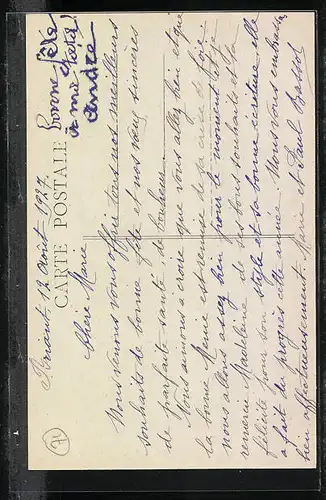 Bonne fête
à mi
André
12 Août 1927.
CARTE POSTALE
Chère Marie
Nous venons vous offrir tous nos meilleurs
souhaits de bonne fête et nos vœux sincères
de parfaite santé, de bonheur
Nous aimons à croire que vous allez bien et que
la bonne Mémé est remise de sa crise de foie
nous allons assez bien pour le moment et je
remercie Madeleine de ses bons souhaits et la
félicite pour son style et sa bonne écriture elle
a fait du progrès cette année. Nous vous embrassons
bien affectueusement. Marie et Paul